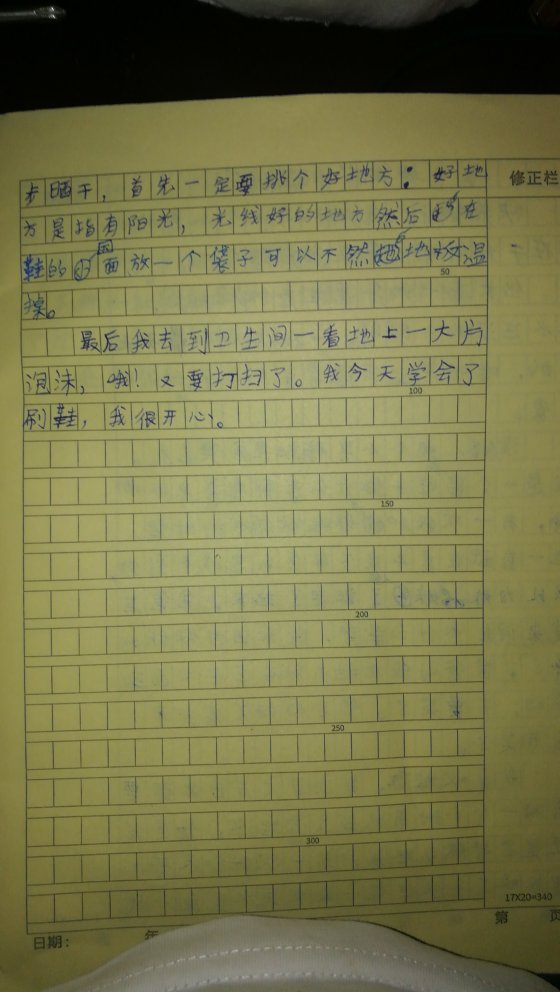 步晒干，首先一定要挑个好地方：好地
修正栏
方是指有阳光，光线好的地方然后在
鞋的面放一个袋子可以不然地板温
50
最后我去到卫生间一看地上一大片
泡沫，哦！又要打扫了。我今天学会了
100
刷鞋，我很开心。
150
200
250
300
17X20=340
第 页
日期： 年